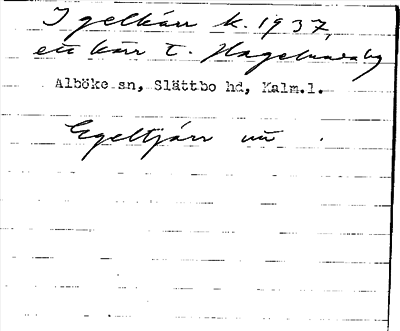 Igelkärr k. 1937,
ett kärr t. Hagelundaby
Alböke sn, Slättbo hd, Kalm.l.
Egeltjärr nu .